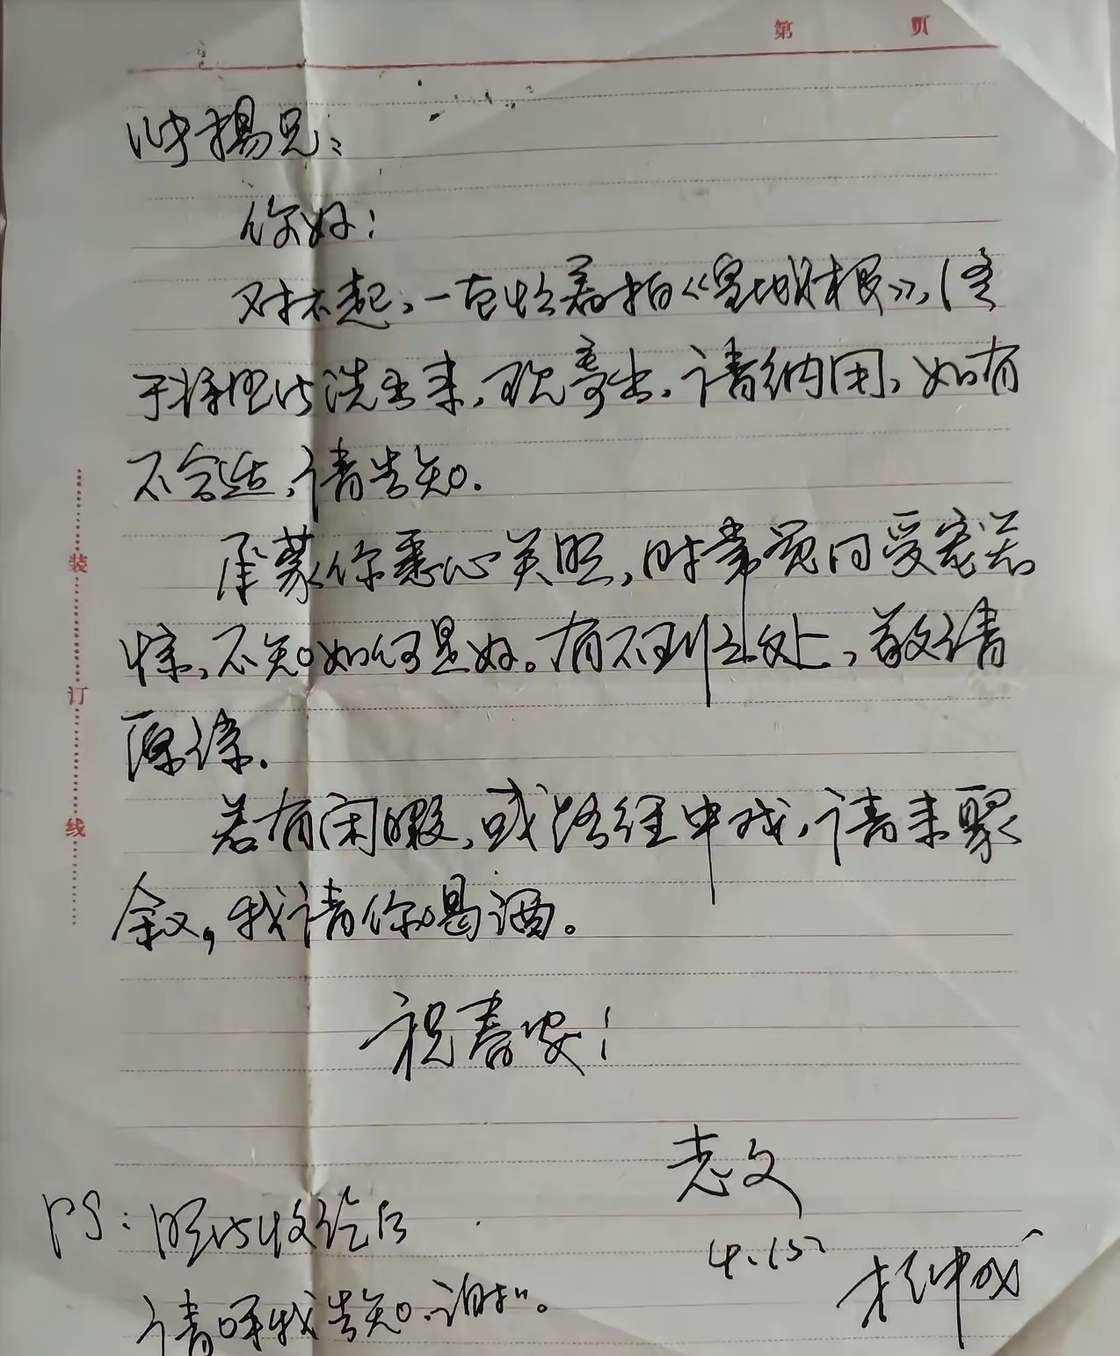 第 页
扬兄：
你好！
对不起，一直忙着拍《》，终
于将照片洗出来，现寄出，请纳用，如有
不合适，请告知。
承蒙你悉心关照，时常觉得受宠若
惊，不知如何是好。有不到之处，敬请
原谅。
若有闲暇，或路经中戏，请来聚
叙，我请你喝酒。
祝春安！
志文
4.15
PS：照片收讫后
请呼我告知.谢谢。
装订线